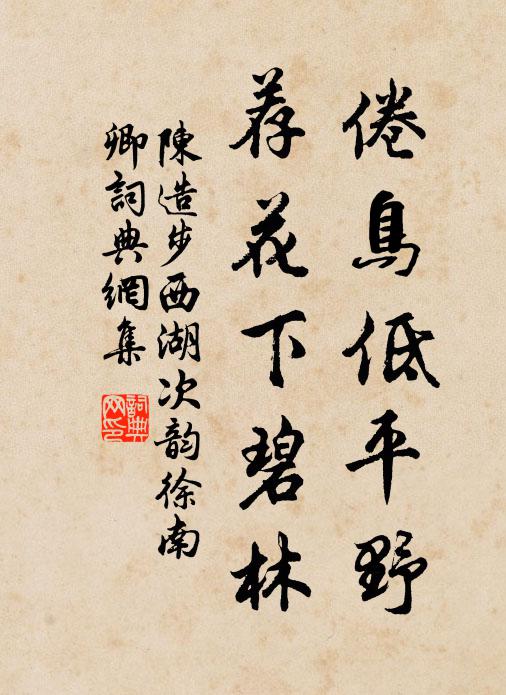 倦鳥低平野
荐花下碧林
陳造步西湖次韵徐南
卿詞典網集
詞典
网印